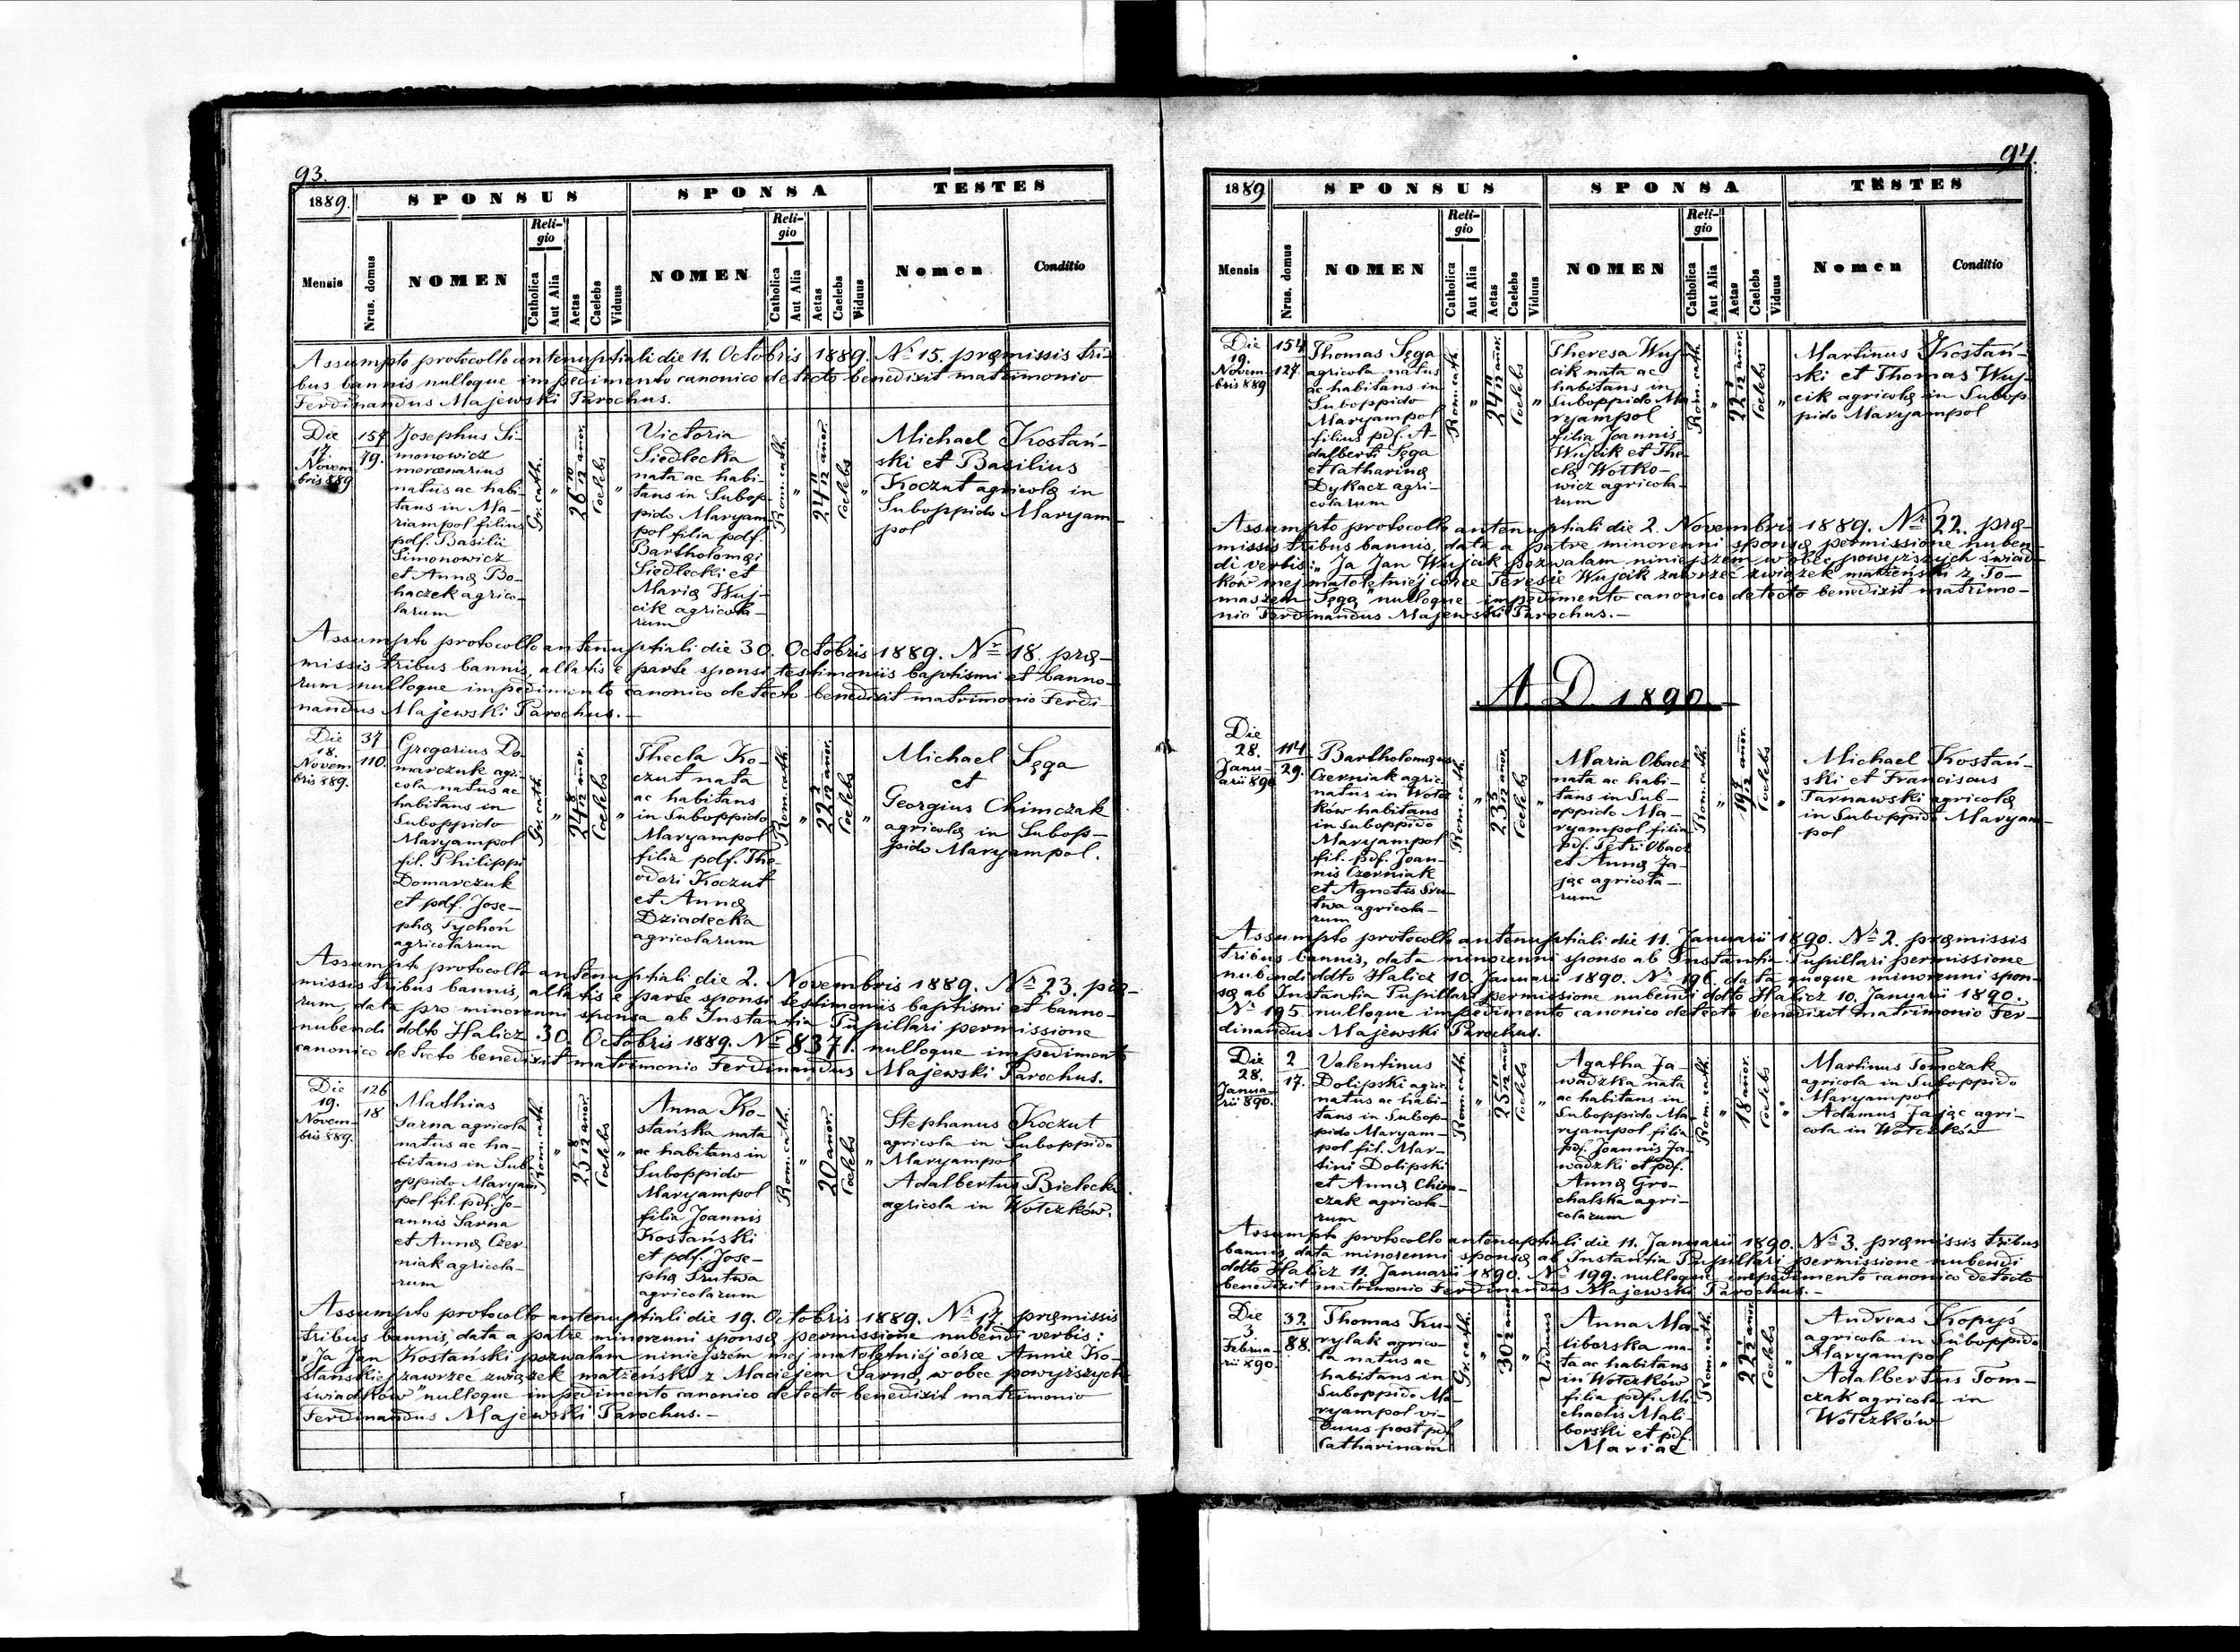 93.
1889.
SPONSUS
SPONSA
TESTES
Mensis
Nrus. domus
NOMEN
Religio
Catholica
Aut Alia
Aetas
Caelebs
Viduus
NOMEN
Religio
Catholica
Aut Alia
Aetas
Caelebs
Viduus
Nomen
Conditio
Assumpto protocollo antenuptiali die 11. Octobris 1889. Nr. 15. præmissis tri-
bus bannis nulloque impedimento canonico detecto benedixit matrimonio
Ferdinandus Majewski Parochus.
Die
17.
Novem
bris 889
157
79.
Josephus Si-
monowicz
mercenarius
natus ac habi-
tans in Ma-
riampol filius
pdf. Basilii
Simonowicz
et Annæ Bo-
haczek agrico-
larum
Gr. cath.
"
26 10/12 anor.
Coelebs
"
Victoria
Siedlecka
nata ac habi-
tans in Subop-
pido Maryam-
pol filia pdf.
Bartholomæi
Siedlecki et
Mariæ Wuj-
cik agricola-
rum
Rom. cath.
"
24 11/12 anor.
Coelebs
"
Michael Kostań-
ski et Basilius
Koczut agricolæ in
Suboppido Maryam-
pol
Assumpto protocollo antenuptiali die 30. Octobris 1889. Nr. 18. præ-
missis tribus bannis, allatis e parte sponsi testimoniis baptismi et banno-
rum nulloque impedimento canonico detecto benedixit matrimonio Ferdi-
nandus Majewski Parochus.—
Die
18.
Novem
bris 889.
37
110.
Gregorius Do-
marczuk agri-
cola natus ac
habitans in
Suboppido
Maryampol
fil. Philippi
Domarczuk
et pdf. Jose-
phæ Tychoń
agricolarum
Gr. cath.
"
24 8/12 anor.
Coelebs
"
Thecla Ko-
czut nata
ac habitans
in Suboppido
Maryampol
filia pdf. The-
odori Koczut
et Annæ
Dziadecka
agricolarum
Rom. cath.
"
22 2/12 anor.
Coelebs
"
Michael Sęga
et
Georgius Chimczak
agricolæ in Subop-
pido Maryampol.
Assumpto protocollo antenuptiali die 2. Novembris 1889. Nr. 23. præ-
missis tribus bannis, allatis e parte sponsi testimoniis baptismi et banno-
rum, data pro minorenni sponsa ab Instantia Pupillari permissione
nubendi ddto Halicz 30. Octobris 1889. Nr. 8371. nulloque impedimento
canonico detecto benedixit matrimonio Ferdinandus Majewski Parochus.
Die
19.
Novem-
bris 889.
126
18
Mathias
Sarna agricola
natus ac ha-
bitans in Sub-
oppido Maryam
pol fil. pdf. Jo-
annis Sarna
et Annæ Czer-
niak agricola-
rum
Rom. cath.
"
25 8/12 anor.
Coelebs
"
Anna Ko-
stańska nata
ac habitans in
Suboppido
Maryampol
filia Joannis
Kostański
et pdf. Jose-
phæ Srutwa
agricolarum
Rom. cath.
"
20 anor.
Coelebs
"
Stephanus Koczut
agricola in Suboppido
Maryampol
Adalbertus Bielecki
agricola in Wołczków.
Assumpto protocollo antenuptiali die 19. Octobris 1889. Nr. 17. præmissis
tribus bannis, data a patre minorenni sponsæ permissione nubendi verbis:
"Ja Jan Kostański pozwalam niniejszém mej małoletniéj córce Annie Ko-
stańskiej zawrzec związek matżeński z Maciejem Sarną, w obec powyższych
świadków" nulloque impedimento canonico detecto benedixit matrimonio
Ferdinandus Majewski Parochus.—
94.
1889
SPONSUS
SPONSA
TESTES
Mensis
Nrus. domus
NOMEN
Religio
Catholica
Aut Alia
Aetas
Caelebs
Viduus
NOMEN
Religio
Catholica
Aut Alia
Aetas
Caelebs
Viduus
Nomen
Conditio
Die
19.
Novem
bris 889
154
127.
Thomas Sęga
agricola natus
ac habitans in
Suboppido
Maryampol
filius pdf. A-
dalberti Sęga
et Catharinæ
Dykacz agri-
colarum
Rom. cath.
"
24 11/12 anor.
Coelebs
"
Theresa Wuj-
cik nata ac
habitans in
Suboppido Ma-
ryampol
filia Joannis
Wujcik et The-
clæ Wołko-
wicz agricola-
rum
Rom. cath.
"
Coelebs
"
Martinus Kostań-
ski et Thomas Wuj-
cik agricolæ in Subop-
pido Maryampol
Assumpto protocollo antenuptiali die 2. Novembris 1889. Nr. 22. præ-
missis tribus bannis, data a patre minorenni sponsæ permissione nuben-
di verbis: "Ja Jan Wujcik pozwalam niniejszem w obec powyższych świad-
ków mej małoletniéj córce Teresie Wujcik zawrzeć związek małżeński z To-
maszem Sęgą" nulloque impedimento canonico detecto benedixit matrimo-
nio Ferdinandus Majewski Parochus.—
A. D. 1890.
Die
28.
Janu-
arii 890
114
29.
Bartholomæus
Czerniak agric.
natus in Wołcz
ków habitans
in Suboppido
Maryampol
fil. pdf. Joan-
nis Czerniak
et Agnetis Sru-
twa agricola-
rum
Rom. cath.
"
23 5/12 anor.
Coelebs
"
Maria Obacz
nata ac habi-
tans in Sub-
oppido Ma-
ryampol filia
pdf. Petri Obacz
et Annæ Ja-
jąc agricola-
rum
Rom. cath.
"
Coelebs
"
Michael Kostań-
ski et Franciscus
Tarnawski agricolæ
in Suboppido Maryam-
pol
Assumpto protocollo antenuptiali die 11. Januarii 1890. Nr. 2. præmissis
tribus bannis, data minorenni sponso ab Instantia Pupillari permissione
nubendi ddto Halicz 10. Januarii 1890. Nr. 196. data quoque minorenni spon-
sæ ab Instantia Pupillari permissione nubendi ddto Halicz 10. Januarii 1890.
Nr. 195. nulloque impedimento canonico detecto benedixit matrimonio Fer-
dinandus Majewski Parochus.
Die
28.
Janua-
rii 890.
2
17.
Valentinus
Dolipski agric.
natus ac habi-
tans in Subop-
pido Maryam-
pol fil. Mar-
tini Dolipski
et Annæ Chim-
czak agricola-
rum
Rom. cath.
"
25 11/12 anor.
Coelebs
"
Agatha Ja-
wadzka nata
ac habitans in
Suboppido Ma-
ryampol filia
pdf. Joannis Ja-
wadzki et pdf.
Annæ Gro-
chalska agri-
colarum
Rom. cath.
"
18 anor.
Coelebs
"
Martinus Tomczak
agricola in Suboppido
Maryampol
Adamus Jając agri-
cola in Wołczków
Assumpto protocollo antenuptiali die 11. Januarii 1890. Nr. 3. præmissis tribus
bannis, data minorenni sponsæ ab Instantia Pupillari permissione nubendi
ddto Halicz 11. Januarii 1890. Nr. 199. nulloque impedimento canonico detecto
benedixit matrimonio Ferdinandus Majewski Parochus.—
Die
3.
Februa-
rii 890.
32
88.
Thomas Ku-
rylak agrico-
la natus ac
habitans in
Suboppido Ma-
ryampol vi-
duus post pdf.
Catharinam
Gr. cath.
"
30 2/12 anor.
"
Viduus
Anna Ma-
liborska na-
ta ac habitans
in Wołczków
filia pdf. Mi-
chaelis Mali-
borski et pdf.
Mariae
Rom. cath.
"
Coelebs
"
Andreas Kopyś
agricola in Suboppido
Maryampol
Adalbertus Tom-
czak agricola in
Wołczków